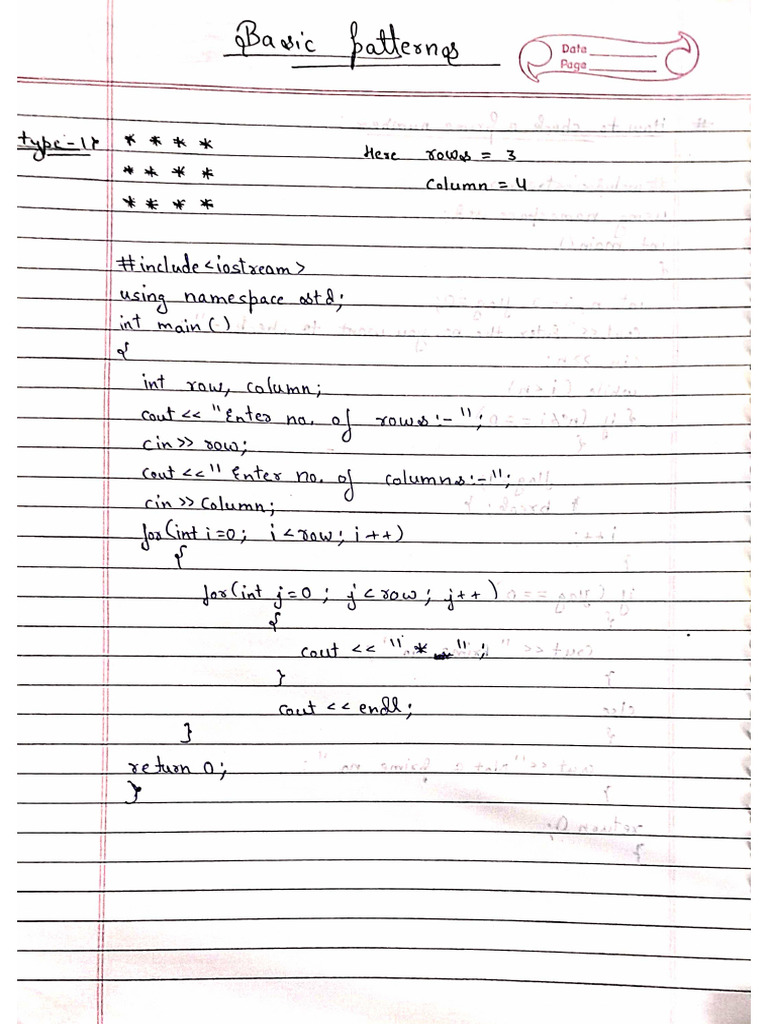 Basic Patterns
Date
Page
type-1} * * * *
Here rows = 3
* * * *
column = 4
* * * *
#include<iostream>
using namespace std;
int main()
{
int row, column;
cout<< "Enter no. of rows:-";
cin>> row;
cout<<" Enter no. of columns:-";
cin>> Column;
for(int i=0; i<row; i++)
{
for(int j=0; j<row; j++)
{
cout << "*_";
}
cout << endl;
}
return 0;
}